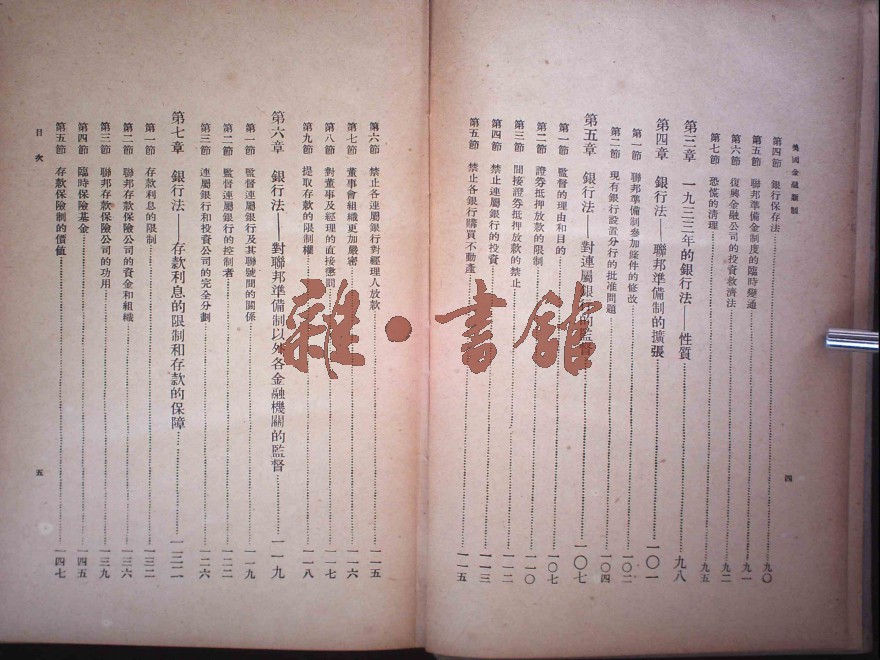 美國金融顯制
四
第四節 銀行保存法 九〇
第五節 聯邦準備金制度的臨時變通 九一
第六節 復興金融公司的投資救濟法 九二
第七節 恐慌的清理 九五
第三章 一九三三年的銀行法——性質 九八
第四章 銀行法——聯邦準備制的擴張 一〇一
第一節 聯邦準備制參加條件的修改 一〇二
第二節 現有銀行設置分行的批准問題 一〇四
第五章 銀行法——對連屬銀行的監督 一〇七
第一節 監督的理由和目的 一〇七
第二節 證券抵押放款的限制 一一〇
第三節 間接證券抵押放款的禁止 一一二
第四節 禁止連屬銀行的投資 一一三
第五節 禁止各銀行購買不動產 一一五
第六節 禁止各連屬銀行對經理人放款 一一五
第七節 董事會組織更加嚴密 一一六
第八節 對董事及經理的直接懲罰 一一七
第九節 提取存款的限制權 一一八
第六章 銀行法——對聯邦準備制以外各金融機關的監督 一一九
第一節 監督連屬銀行及其聯號間的關係 一一九
第二節 監督連屬銀行的控制者 一二二
第三節 連屬銀行和投資公司的完全分劃 一二六
第七章 銀行法——存款利息的限制和存款的保障 一三二
第一節 存款利息的限制 一三二
第二節 聯邦存款保險公司的資金和組織 一三六
第三節 聯邦存款保險公司的功用 一三九
第四節 臨時保險基金 一四五
第五節 存款保險制的價值 一四七
目次
五
雜·書館